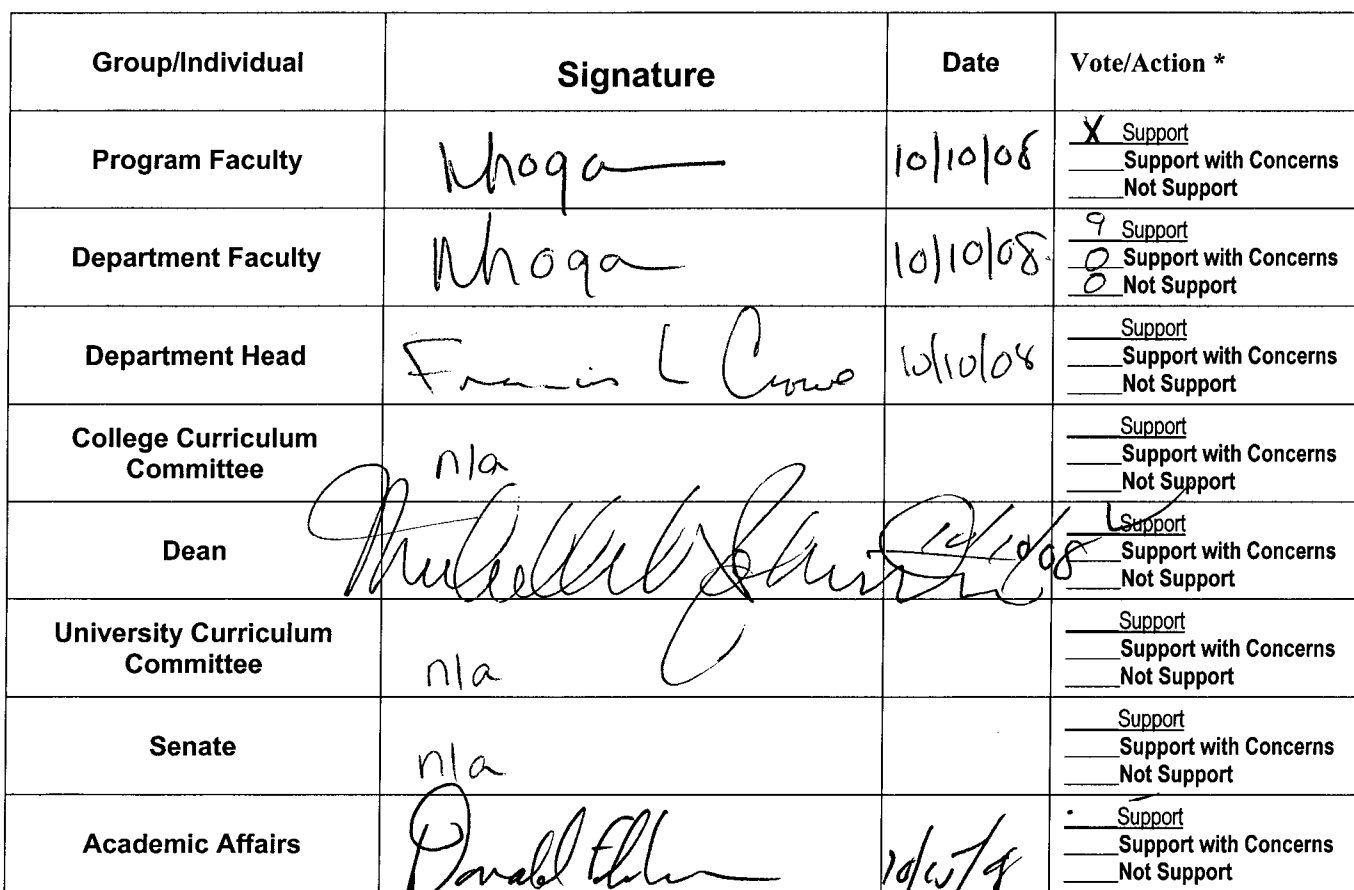 Group/Individual Signature Date Vote/Action *
Program Faculty 10/10/08 X Support
Support with Concerns
Not Support
Department Faculty 10/10/08 9 Support
0 Support with Concerns
0 Not Support
Department Head Francis L Crowe 10/10/08 Support
Support with Concerns
Not Support
College Curriculum Committee n/a Support
Support with Concerns
Not Support
Dean 10/10/08 Support
Support with Concerns
Not Support
University Curriculum Committee n/a Support
Support with Concerns
Not Support
Senate n/a Support
Support with Concerns
Not Support
Academic Affairs Donald Support
Support with Concerns
Not Support